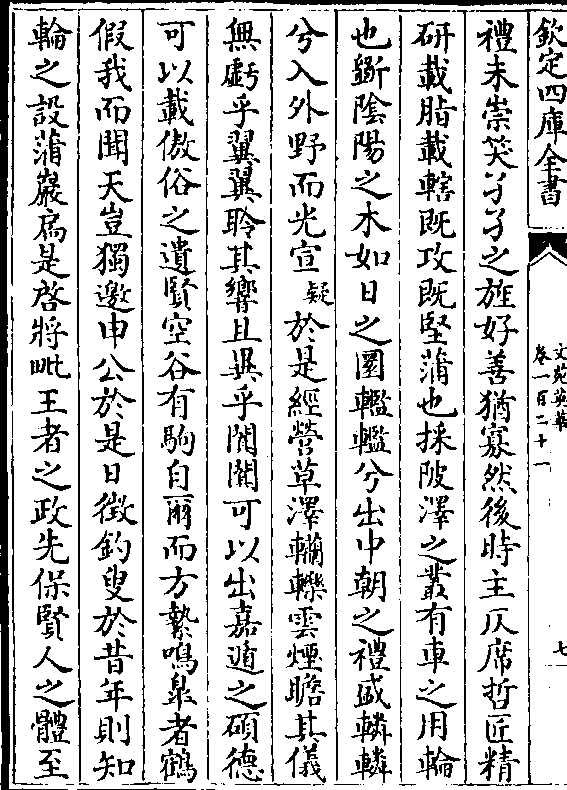 欽定四庫全書
文苑英華
卷一百二十一
七
禮未崇笑孑孑之旌好善猶寡然後時主仄席哲匠精
研載脂載轄既攻既堅蒲也採陂澤之叢有車之用輪
也斵陰陽之木如日之圜轞轞兮出中朝之禮盛轔轔
兮入外野而光宣疑於是經營草澤轥轢雲煙瞻其儀
無虧乎翼翼聆其響且異乎闐闐可以出嘉遁之碩德
可以載傲俗之遺賢空谷有駒白爾而方縶鳴臯者鶴
假我而聞天豈獨邀申公於是日徵釣叟於昔年則知
輪之設蒲巖扃是啓將毗王者之政先保賢人之體至